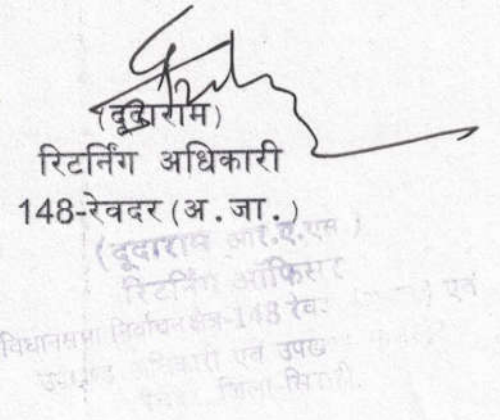 (दूदाराम)
रिटर्निंग अधिकारी
148-रेवदर (अ.जा.)
(दूदाराम आर.ए.एस)
रिटर्निंग ऑफिसर
विधानसभा निर्वाचन क्षेत्र-148 रेव एवं
अधिकारी एवं उपख
जिला-सिरोही